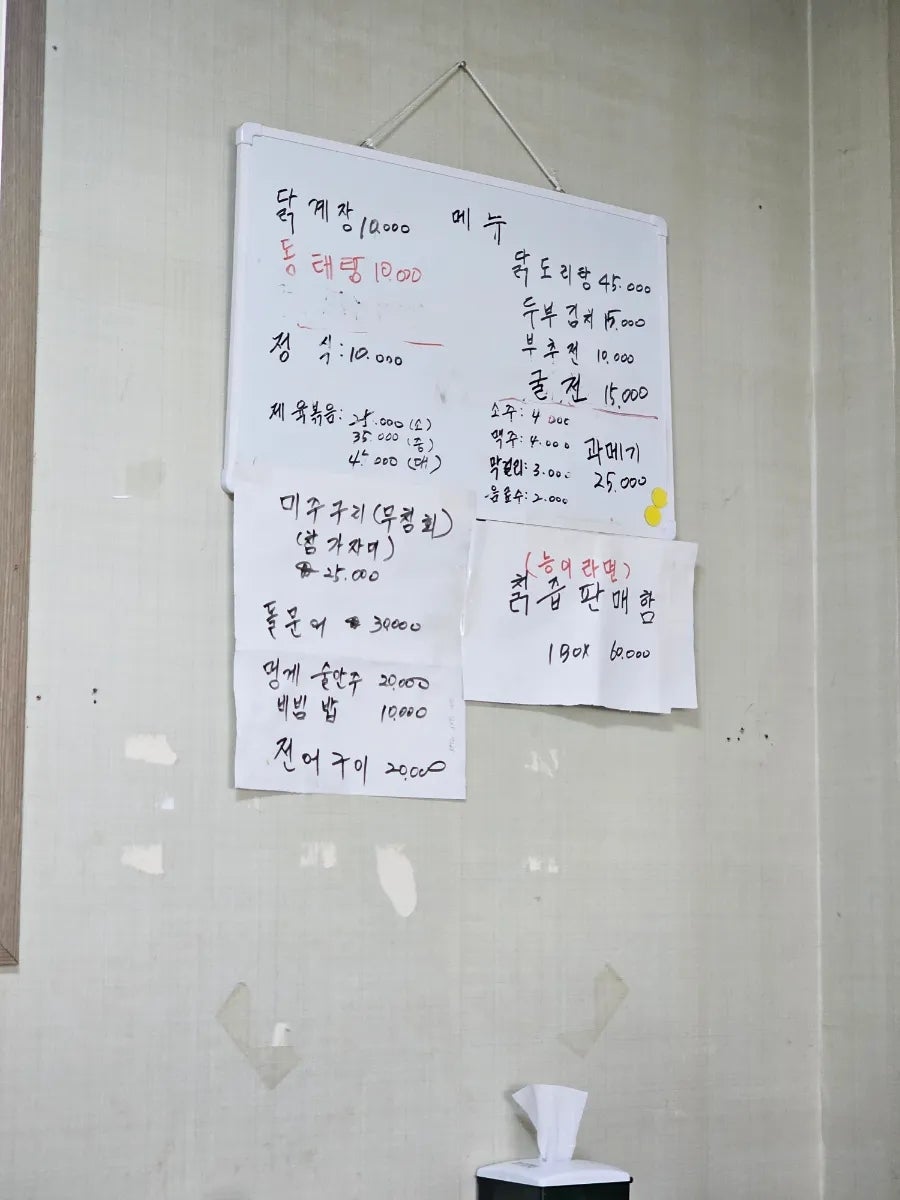 메뉴
닭계장 10.000
동태탕 10.000
정 식: 10.000
제육볶음: 25.000 (소)
35.000 (중)
45.000 (대)
닭도리탕 45.000
두부김치 15.000
부추전 10.000
굴전 15.000
소주: 4.000
맥주: 4.000
막걸리: 3.000
음료수: 2.000
과메기
25.000
미주구리(무침회)
(참가자미)
25.000
돌문어 30000
멍게 술안주 20.000
비빔밥 10.000
전어구이 20.000
(능이라면)
칡즙판매함
1BOX 60.000